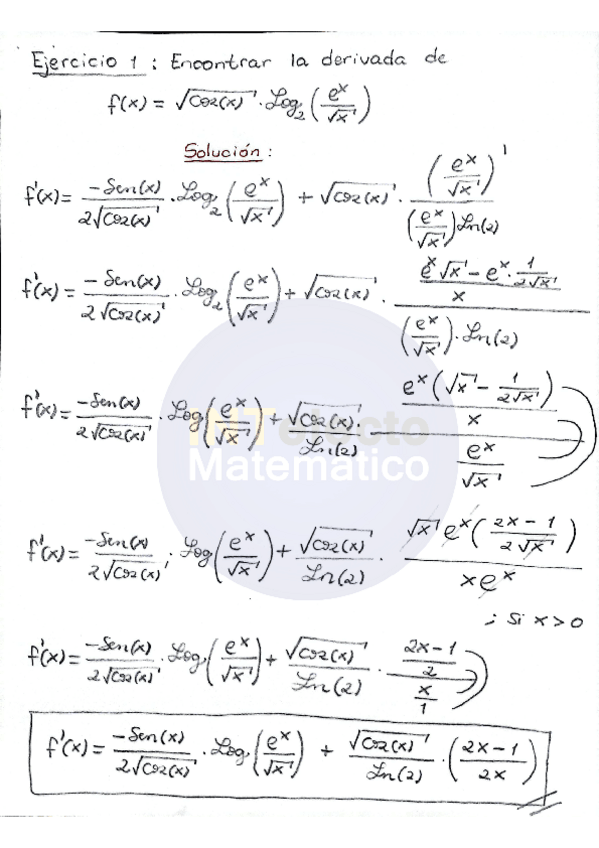 Ejercicio 1 : Encontrar la derivada de
f(x) = √Cos(x) · Log₂(eˣ/√x)
Solución :
f'(x) = -Sen(x)/2√Cos(x) · Log₂(eˣ/√x) + √Cos(x) · (eˣ/√x)'/(eˣ/√x)Ln(2)
f'(x) = -Sen(x)/2√Cos(x) · Log₂(eˣ/√x) + √Cos(x) · ((eˣ√x - eˣ · 1/2√x)/x)/((eˣ/√x) · Ln(2))
f'(x) = -Sen(x)/2√Cos(x) · Log(eˣ/√x) + √Cos(x)/Ln(2) · (eˣ(√x - 1/2√x)/x)/(eˣ/√x)
INTelecto
Matemático
f'(x) = -Sen(x)/2√Cos(x) · Log(eˣ/√x) + √Cos(x)/Ln(2) · √x eˣ((2x - 1)/2√x)/xeˣ
; Si x > 0
f'(x) = -Sen(x)/2√Cos(x) · Log(eˣ/√x) + √Cos(x)/Ln(2) · ((2x - 1)/2)/(x/1)
f'(x) = -Sen(x)/2√Cos(x) · Log(eˣ/√x) + √Cos(x)/Ln(2) · ((2x - 1)/2x)